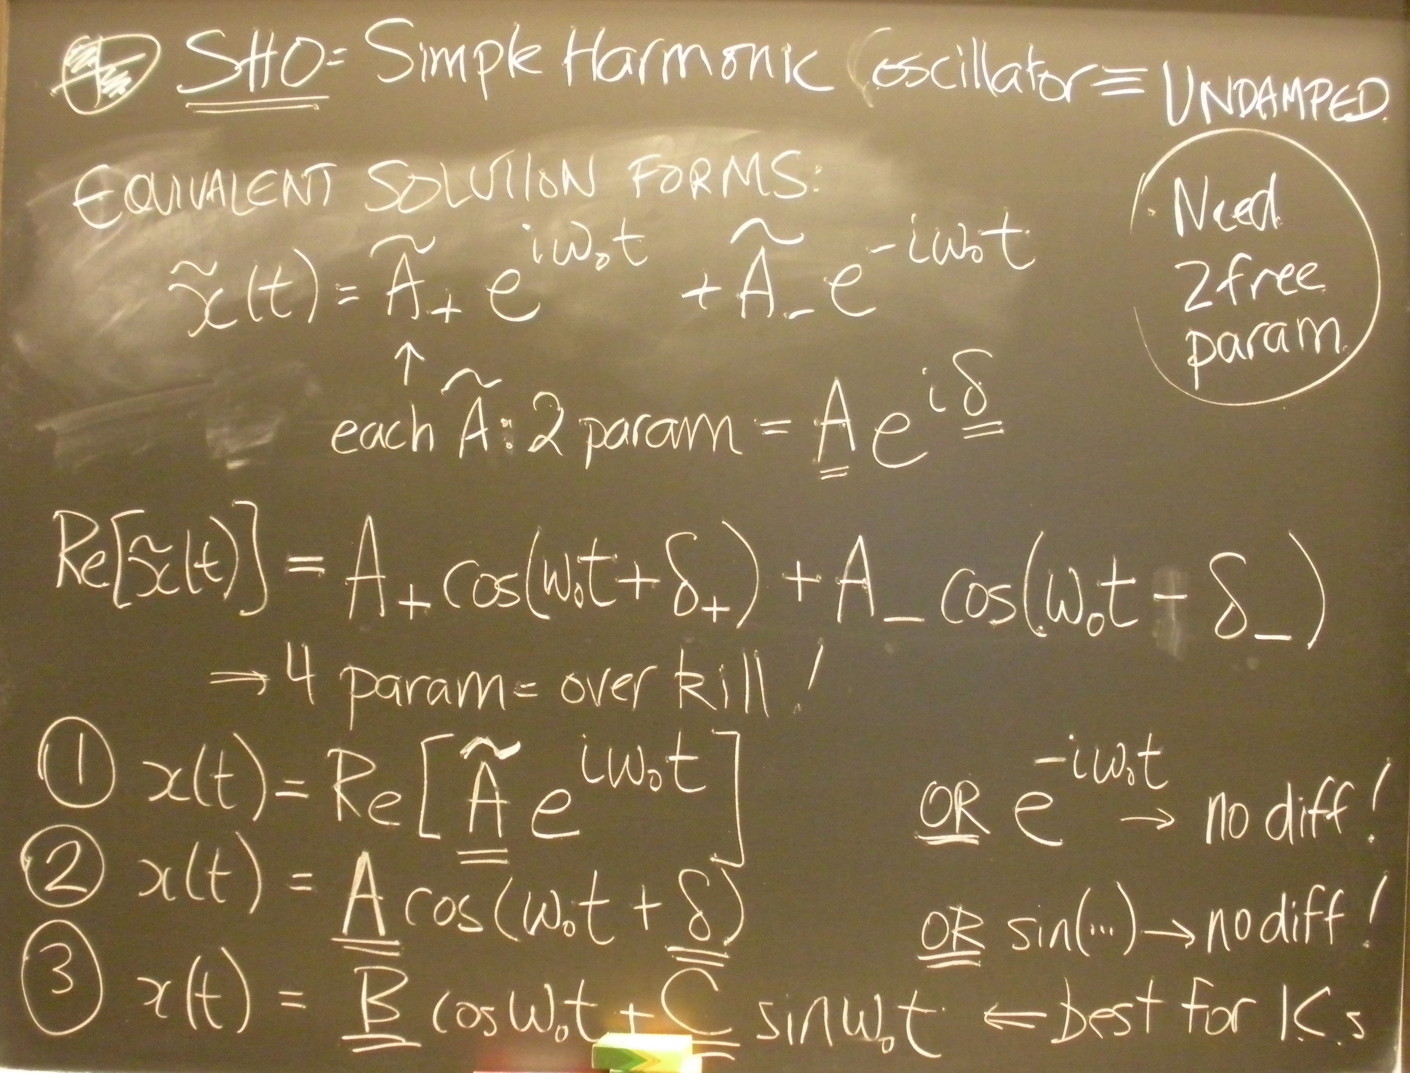 SHO = Simple Harmonic Oscillator ≡ UNDAMPED
EQUIVALENT SOLUTION FORMS:
Need
2 free
param
x̃(t) = Ã₊ e^{iω₀t} + Ã₋ e^{-iω₀t}
↑
each Ã: 2 param = A e^{iδ}
Re[x̃(t)] = A₊ cos(ω₀t + δ₊) + A₋ cos(ω₀t - δ₋)
⇒ 4 param = over kill!
① x(t) = Re[Ã e^{iω₀t}] OR e^{-iω₀t} → no diff!
② x(t) = A cos(ω₀t + δ) OR sin(...) → no diff!
③ x(t) = B cos ω₀t + C sin ω₀t ⇐ best for ICs